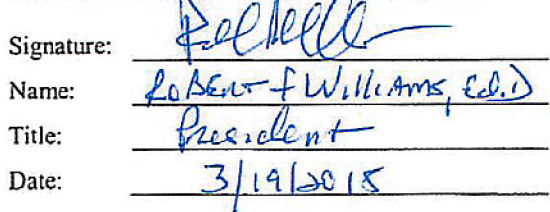 Signature:
Name: Robert F Williams, Ed.D
Title: President
Date: 3/19/2015